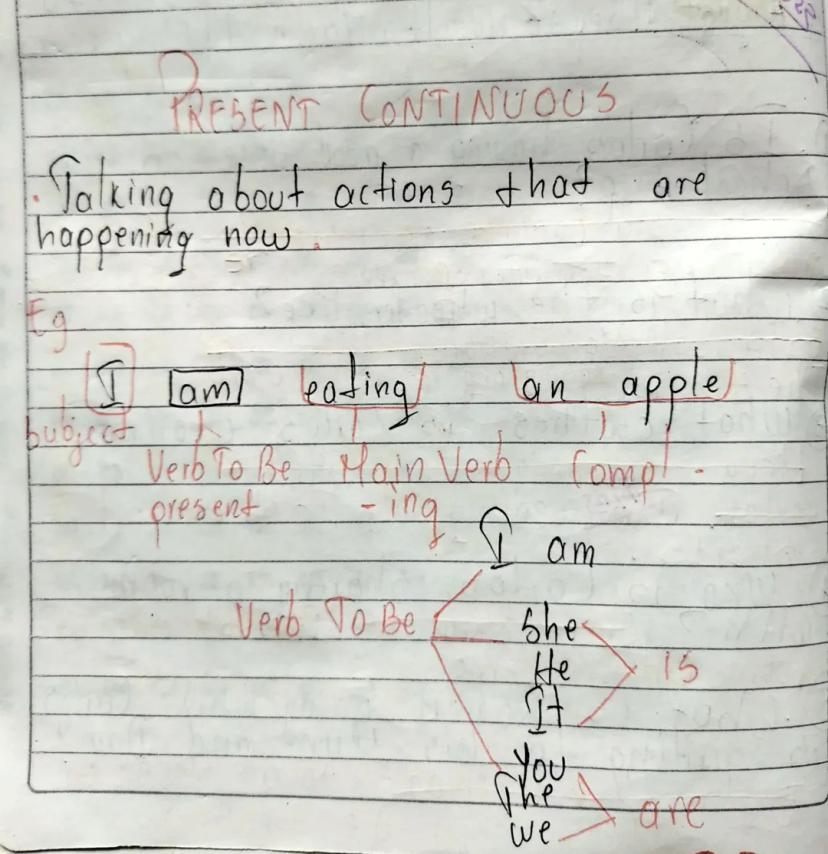 PRESENT CONTINUOUS
. Talking about actions that are
happening now .
Eg
I am eating an apple
Subject
Verb To Be Main Verb Compl .
present -ing
I am
Verb To Be
She
He is
It
You
The
we are